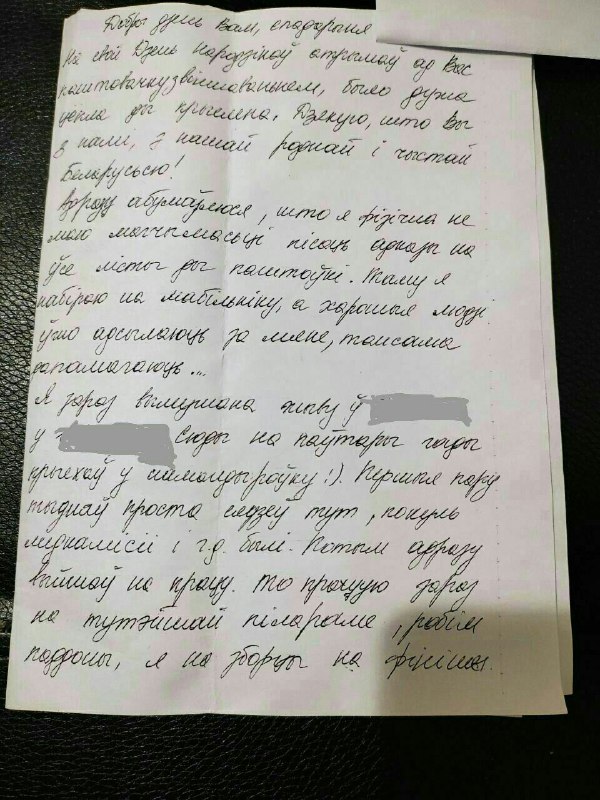 Добры дзень Вам, спадарыня
На свой Дзень народзінаў атрымаў ад Вас
паштовачку з віншаваньнем, было дужа
цёпла ды прыемна. Дзякую, што Вы
з намі, з нашай роднай і чыстай
Беларусьсю!
Адразу абумоўлюся, што я фізічна не
маю магчымасьці пісаць адказы на
ўсе лісты ды паштоўкі. Таму я
набіраю на мабільніку, а харошыя людзі
ўжо адсылаюць за мяне, таксама
дапамагаюць...
Я зараз вымушана жыву ў
у Сюды на паўтары гады
прыехаў у камандыроўку :). Першыя пару
тыдняў проста сядзеў тут, покуль
медкамісіі і г.д. былі. Потым адразу
выйшаў на працу. То працую зараз
на тутэйшай піламаме, робім
паддоны, я на зборцы на фінішы.